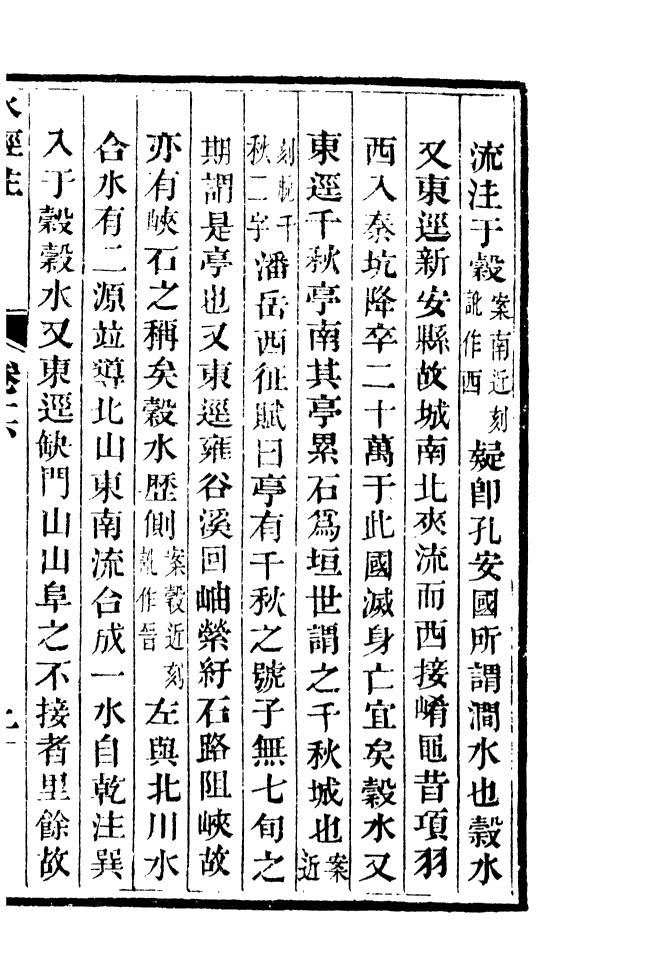 流注于穀案南近刻訛作西疑卽孔安國所謂澗水也穀水
又東逕新安縣故城南北夾流而西接崤黽昔項羽
西入秦坑降卒二十萬于此國滅身亡宜矣穀水又
東逕千秋亭南其亭累石爲垣世謂之千秋城也案近
刻脫千秋二字潘岳西征賦曰亭有千秋之號子無七旬之
期謂是亭也又東逕雍谷溪回岫縈紆石路阻峽故
亦有峽石之稱矣穀水歷側案穀近刻訛作晉左與北川水
合水有二源竝導北山東南流合成一水自乾注巽
入于穀穀水又東逕缺門山山阜之不接者里餘故
水經注 卷十六 九